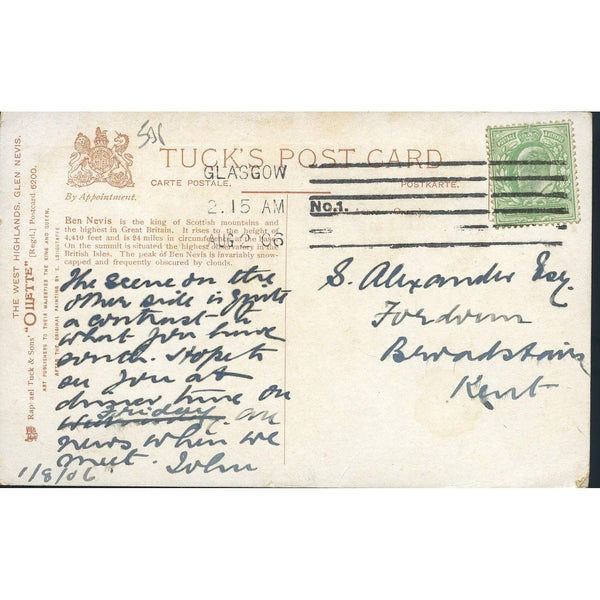 TUCK'S POST CARD
CARTE POSTALE.
POSTKARTE.
By Appointment.
GLASGOW
2.15 AM
AUG 2 06
No.1.
Ben Nevis is the king of Scottish mountains and
the highest in Great Britain. It rises to the height of
4,410 feet and is 24 miles in circumference at the
On the summit is situated the highest observatory in the
British Isles. The peak of Ben Nevis is invariably snow-
capped and frequently obscured by clouds.
The scene on the
other side is quite
a contrast to
what you have
seen. Hope to
see you at
dinner time on
Friday. all
news when we
meet. John
1/8/06
S. Alexander Esq.
Broadstairs
Kent
THE WEST HIGHLANDS, GLEN NEVIS.
Raphael Tuck & Sons' "OILETTE" [Regd.] Postcard 6200.
ART PUBLISHERS TO THEIR MAJESTIES THE KING AND QUEEN.
AFTER THE ORIGINAL PAINTING BY